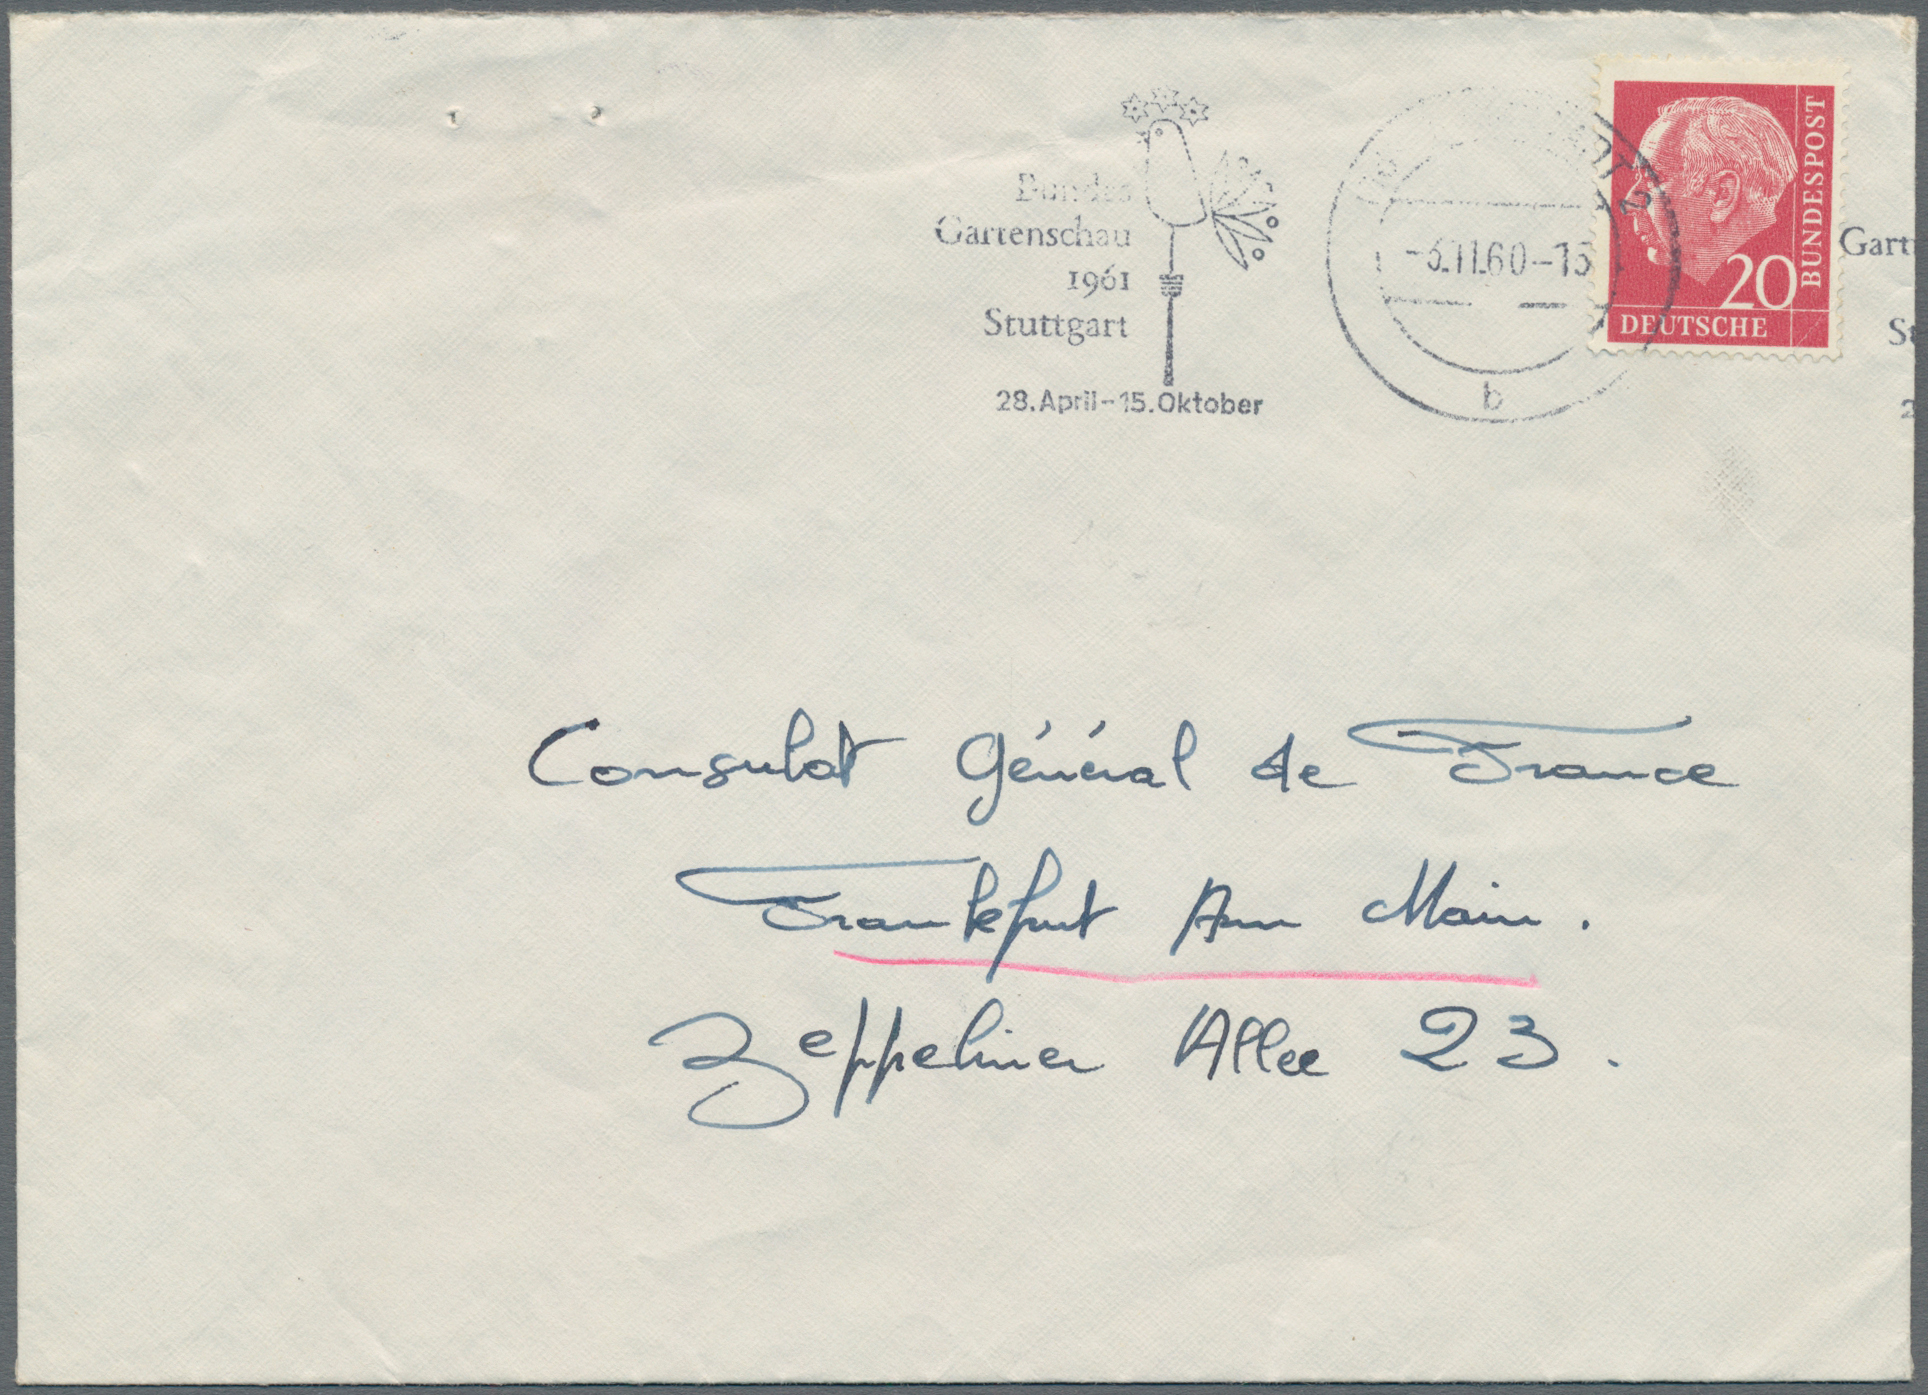 Bundes
Gartenschau
1961
Stuttgart
28. April-15. Oktober
-3.11.60-15
b
20
DEUTSCHE
BUNDESPOST
Gart
St
2
Consulat Général de France
Frankfurt Am Main.
Zeppeliner Allee 23.